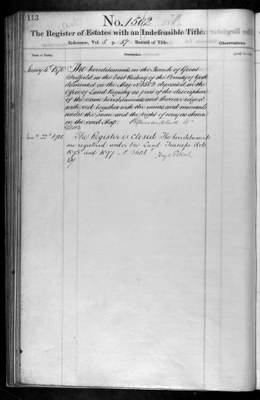 113
No. 1562
The Register of Estates with an Indefeasible Title.
Reference, Vol. 5 p. 57 Record of Title.
Observations.
Date of Entry.
Description
January 5th 1870
The hereditaments in the Parish of Great
Driffield in the East Riding of the County of York
delineated on the Map No 1562 deposited in the
Office of Land Registry as part of the description
of the same hereditaments and thereon edged
with red together with the mines and minerals
under the same and the right of way as shown
on the said Map.
The Register is Closed. The hereditaments
are registered under the Land Transfer Acts
1875 and 1897